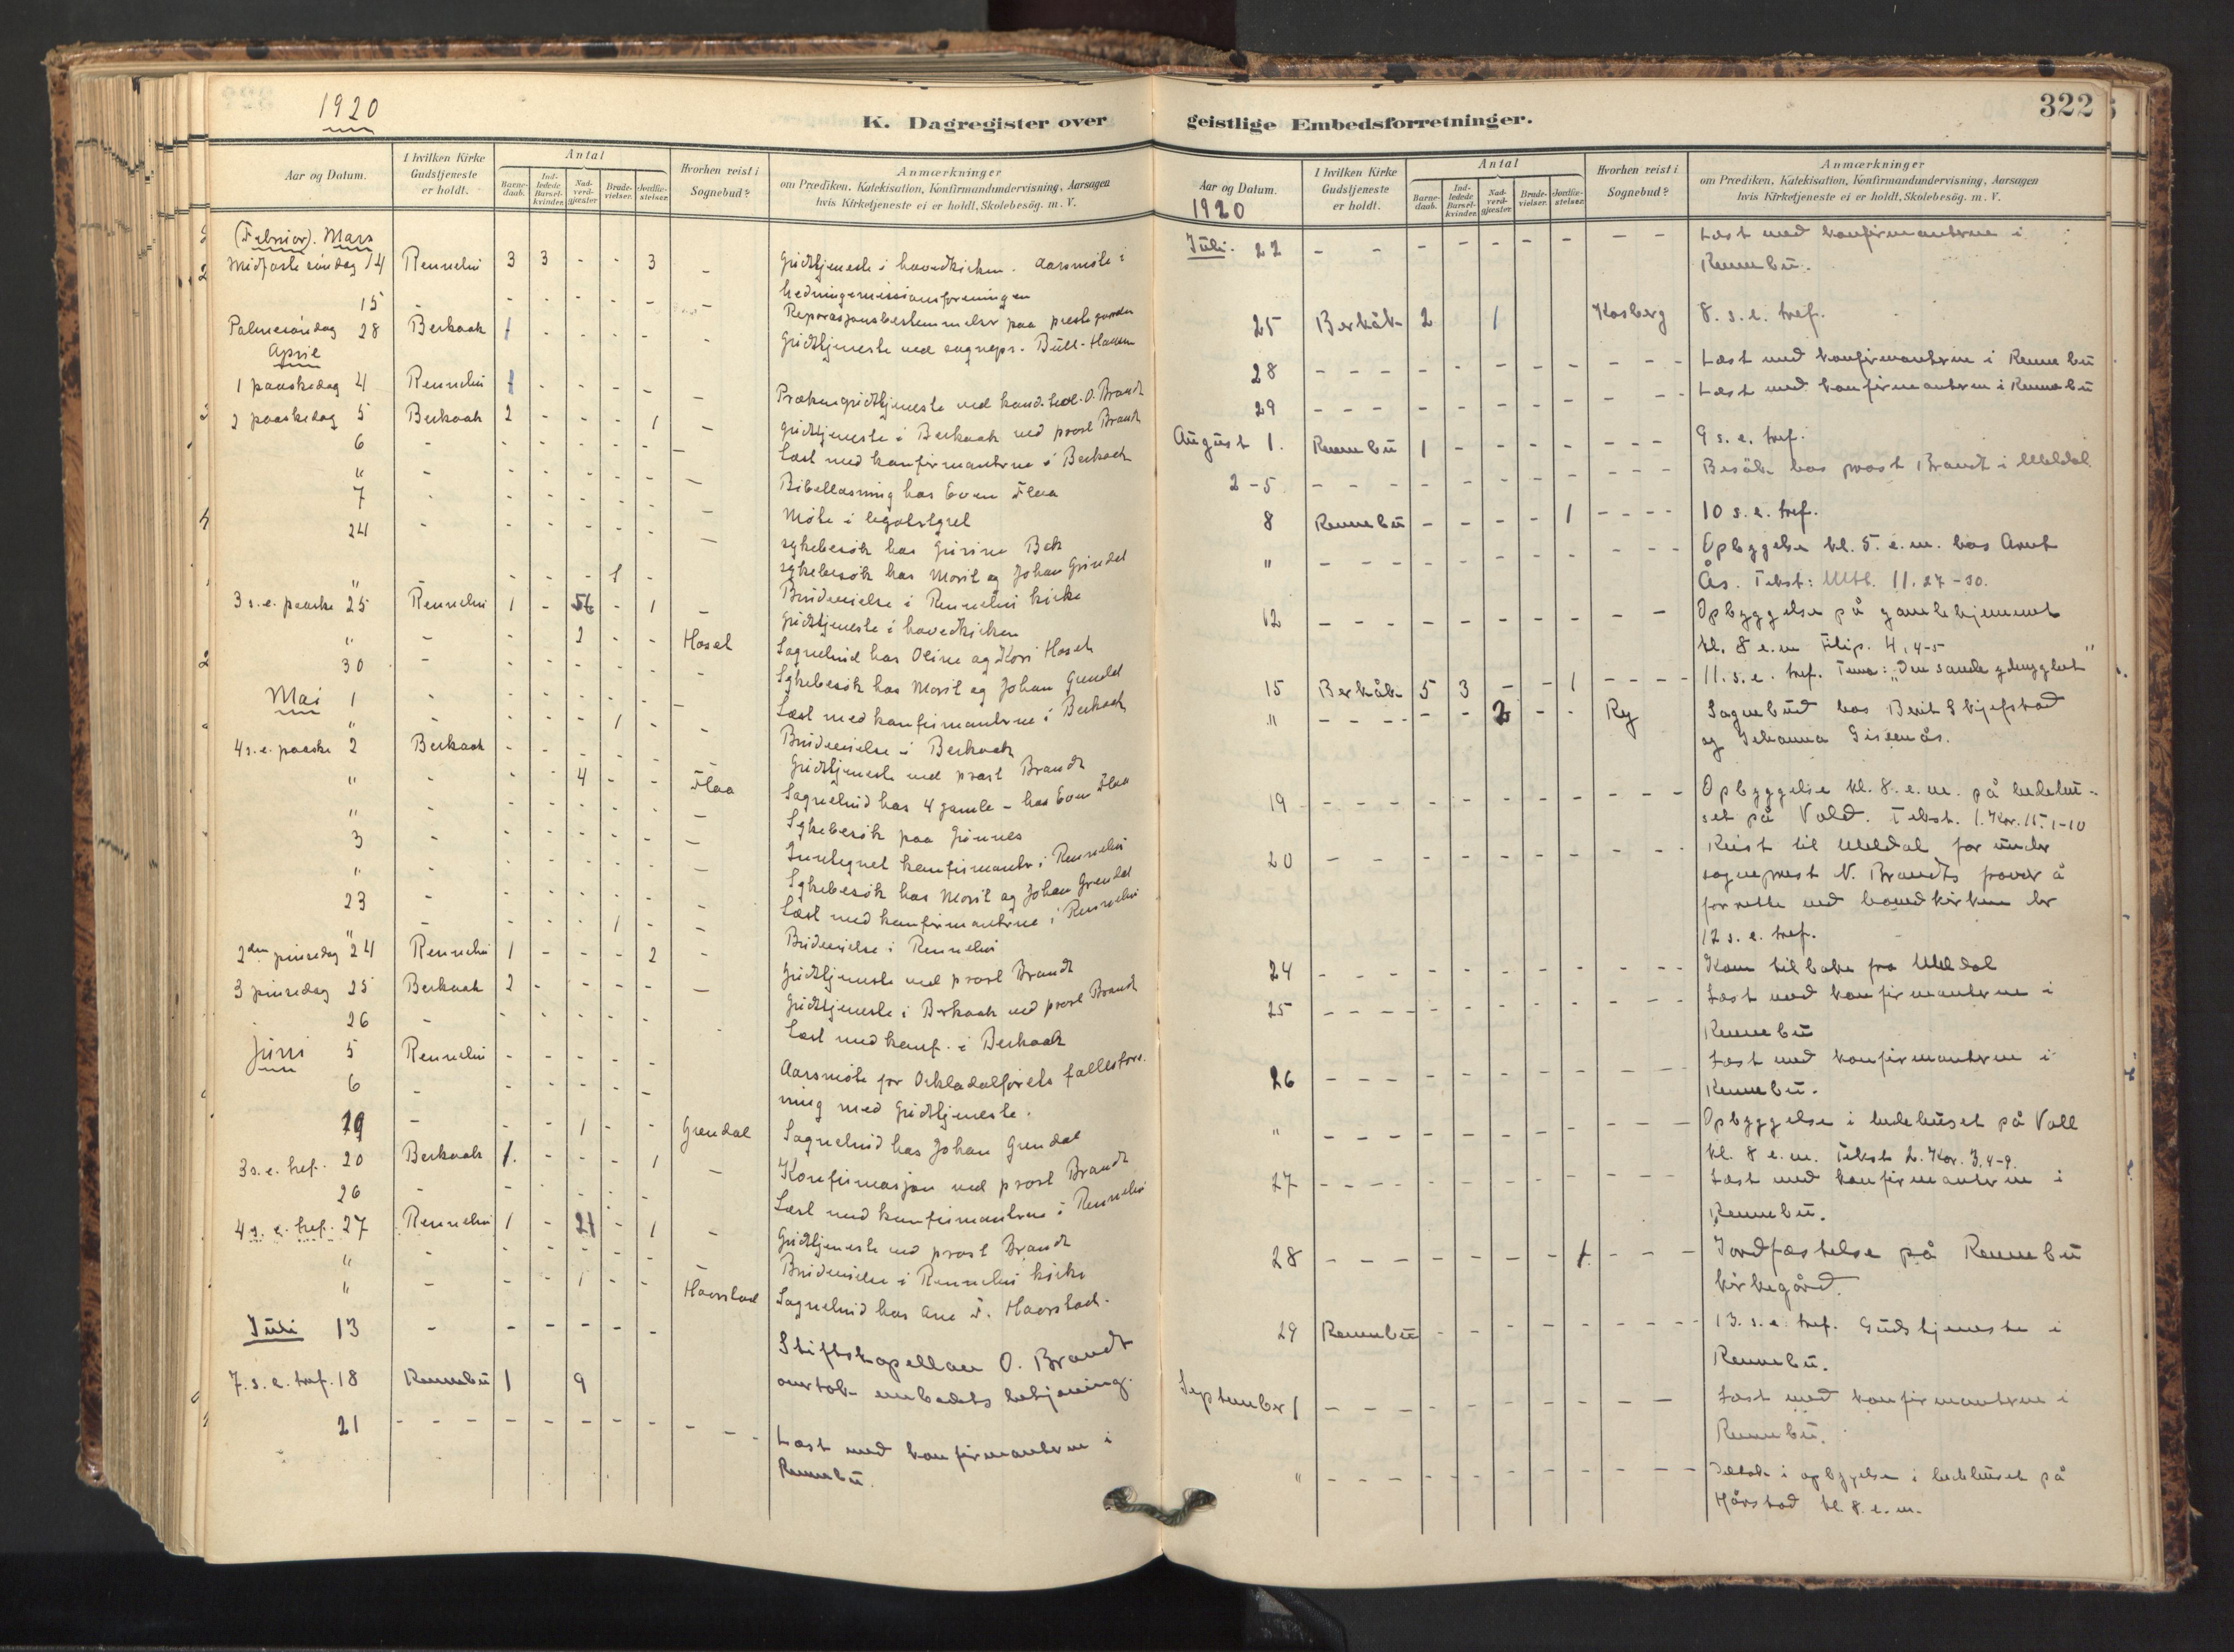 1920
K. Dagregister over
Aar og Datum.
I hvilken Kirke Gudstjeneste er holdt.
Antal
Barne-daab.
Ind-ledede Barsel-kvinder.
Nad-verd-gjæster.
Brude-vielser.
Jordfæ-stelser.
Hvorhen reist i Sognebud?
Anmærkninger
om Prædiken, Katekisation, Konfirmandundervisning, Aarsagen
hvis Kirketjeneste ei er holdt, Skolebesøg. m. V.
(Februar). Mars
Midfaste søndag 14 Rennebu 3 3 - - 3 - Gudstjeneste i hovedkirken. Aarsmøte i
hedningemissionsforeningen
15 - - - - - - - Reparasjonsbestemmelser paa prestegaarden
Palmesøndag 28 Berkaak 1 - - - - Gudstjeneste ved sognepr. Bull-Hansen
April
1 paaskedag 4 Rennebu 1 - - - - - Prækengudstjeneste ved kand. teol. O. Brandt
2 paaskedag 5 Berkaak 2 - - - 1 - gudstjeneste i Berkaak ved prost Brandt
6 - - - - - - - Læst med konfirmanterne i Berkaak
" - - - - - - - Bibellæsning hos Even Flaa
7 - - - - - - - Møte i legatstyret
24 - - - - - - - sykebesøk hos Bek
sykebesøk hos Marit og Johan Grindal
" - - - 1 - Brudevielse i Rennebu kirke
3 s. e. paaske 25 Rennebu 1 - 56 - 1 - Gudstjeneste i hovedkirken
" - - 2 - - Hosel Sognebud hos Oline og Kari Hosel
30 - - - - - - - Sykebesøk hos Marit og Johan Grindal
Mai 1 - - - - - - - Læst med konfirmanterne i Berkaak
" - - - - 1 - - Brudevielse i Berkaak
4 s. e. paaske 2 Berkaak - - - - - - Gudstjeneste ved prost Brandt
" - - - 4 - - Flaa Sognebud hos 4 gamle - hos Even Flaa
" - - - - - - - Sykebesøk paa
3 - - - - - - - Indtegnet konfirmanter i Rennebu
" - - - - - - - Sykebesøk hos Marit og Johan Grendal
23 - - - - - - - Læst med konfirmanterne i Rennebu
" - - - - 1 - - Brudevielse i Rennebu
2den pinsedag 24 Rennebu 1 - - - 2 - Gudstjeneste ved prost Brandt
3 pinsedag 25 Berkaak 2 - - - - - Gudstjeneste i Berkaak ved prost Brandt
26 - - - - - - - Læst med konf. i Berkaak
Juni 5 Rennebu - - - - - Aarsmøte for Orkladalførets fællesfore-
6 - - - - - - ning med Gudstjeneste.
19 - - - 1 - - Grendal Sognebud hos Johan Grendal
3 s. e. tref. 20 Berkaak 1. - - - 1 - Konfirmasjon ved prost Brandt
26 - - - - - - Læst med konfirmanterne i Rennebu
4 s. e. tref. 27 Rennebu 1 - 21 - 1 - Gudstjeneste ved prost Brandt
" - - - - - - - Brudevielse i Rennebu kirke
" - - - 1 - - Haarstad Sognebud hos Ane F. Haarstad.
Juli 13 - - - - - - Stiftskapellan O. Brandt
overtok embedets betjening.
7. s. e. tref. 18 Rennebu 1 9
21 - - - - - - - - - Læst med konfirmanterne i
Rennebu.
geistlige Embedsforretninger.
322
Aar og Datum.
I hvilken Kirke Gudstjeneste er holdt.
Antal
Barne-daab.
Ind-ledede Barsel-kvinder.
Nad-verd-gjæster.
Brude-vielser.
Jordfæ-stelser.
Hvorhen reist i Sognebud?
Anmærkninger
om Prædiken, Katekisation, Konfirmandundervisning, Aarsagen
hvis Kirketjeneste ei er holdt, Skolebesøg. m. V.
1920
Juli. 22 - - - - - - - - - Læst med konfirmanterne i
Rennebu.
25 Berkåk 2 1 Kosberg 8. s. e. tref.
28 - - - - - - - - - - Læst med konfirmanterne i Rennebu
29 - - - - - - - - - - Læst med konfirmanterne i Rennebu
August 1. Rennebu 1 - - - - - - - 9 s. e. tref.
2-5 - - - - - - - - - - Besøk hos prost Brandt i Meldal.
8 Rennebu - - - - 1 - - - - 10 s. e. tref.
" - - - - - - - - - - Opbyggelse kl. 5. e. m. hos Arnt
Ås. Tekst: Mtt. 11. 27-30.
12 - - - - - - - - - - Opbyggelse på gamlehjemmet
kl. 8 e. m Filip. 4, 4-5
15 Berkåk 5 3 - - 1 - - - - 11. s. e. tref. Tema: "Den sande ydmyghet"
" - - - - - - 2 - - Ry Sognebud hos Berit Skjefstad
og Johanna
19 - - - - - - - - - - Opbyggelse kl. 8. e. m. på bedehu-
set på Vold. Tekst. 1. Kor. 15. 1-10
20 - - - - - - - - - - Reist til Meldal for under
sogneprest N. Brandts fravær å
forrette ved hovedkirken der
12 s. e. tref.
24 - - - - - - - - - - Kom tilbake fra Meldal
25 - - - - - - - - - - Læst med konfirmanterne i
Rennebu
26 - - - - - - - - - - Læst med konfirmanterne i
Rennebu.
" - - - - - - - - - - Opbyggelse i bedehuset på Voll
kl. 8 e. m. Tekst 2. Kor. 3, 4-9.
27 - - - - - - - - - - Læst med konfirmanterne i
Rennebu.
28 - - - - - - - 1 - - - Jordfæstelse på Rennebu
kirkegård.
29 Rennebu - - - - - - - - - 13. s. e. tref. Gudstjeneste i
Rennebu.
September 1 - - - - - - - - - - Læst med konfirmanterne i
Rennebu.
" - - - - - - - - - - Deltok i opbyggelse i bedehuset på
Hårstad kl. 8. e. m.